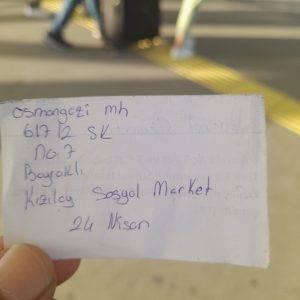 osmangazi mh
617/2 SK
No.7
Bayraklı
Kızılay Sosyal Market
24 Nisan